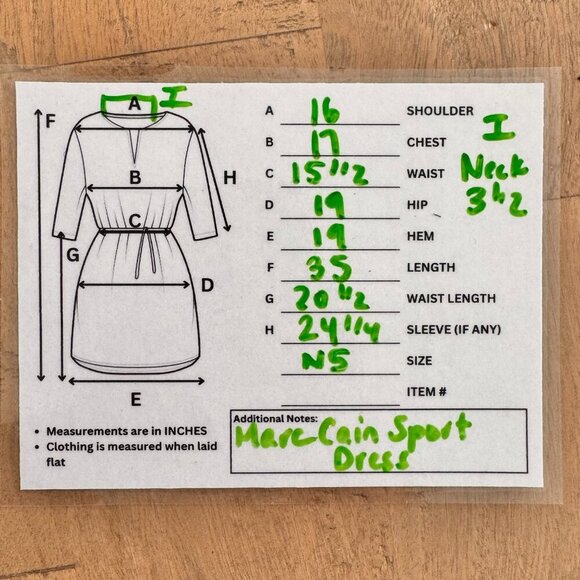 A I
F
B
H
C
G
D
E
A 16 SHOULDER
B 17 CHEST
C 15 1/2 WAIST
D 19 HIP
E 19 HEM
F 35 LENGTH
G 20 1/2 WAIST LENGTH
H 24 1/4 SLEEVE (IF ANY)
NS SIZE
ITEM #
I
Neck
3 1/2
• Measurements are in INCHES
• Clothing is measured when laid
flat
Additional Notes:
Marc Cain Sport
Dress